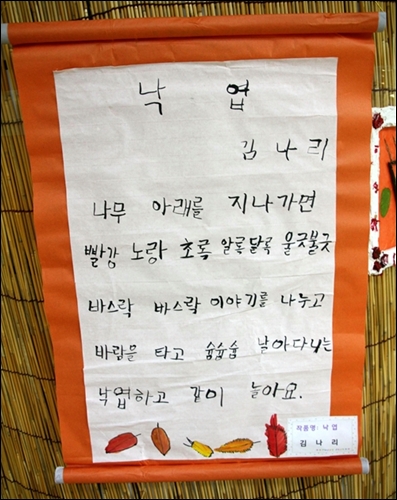 낙 엽
김 나 리
나무 아래를 지나가면
빨강 노랑 초록 알록달록 울긋불긋
바스락 바스락 이야기를 나누고
바람을 타고 슝슝슝 날아다니는
낙엽하고 같이 놀아요.
작품명: 낙 엽
김 나 리